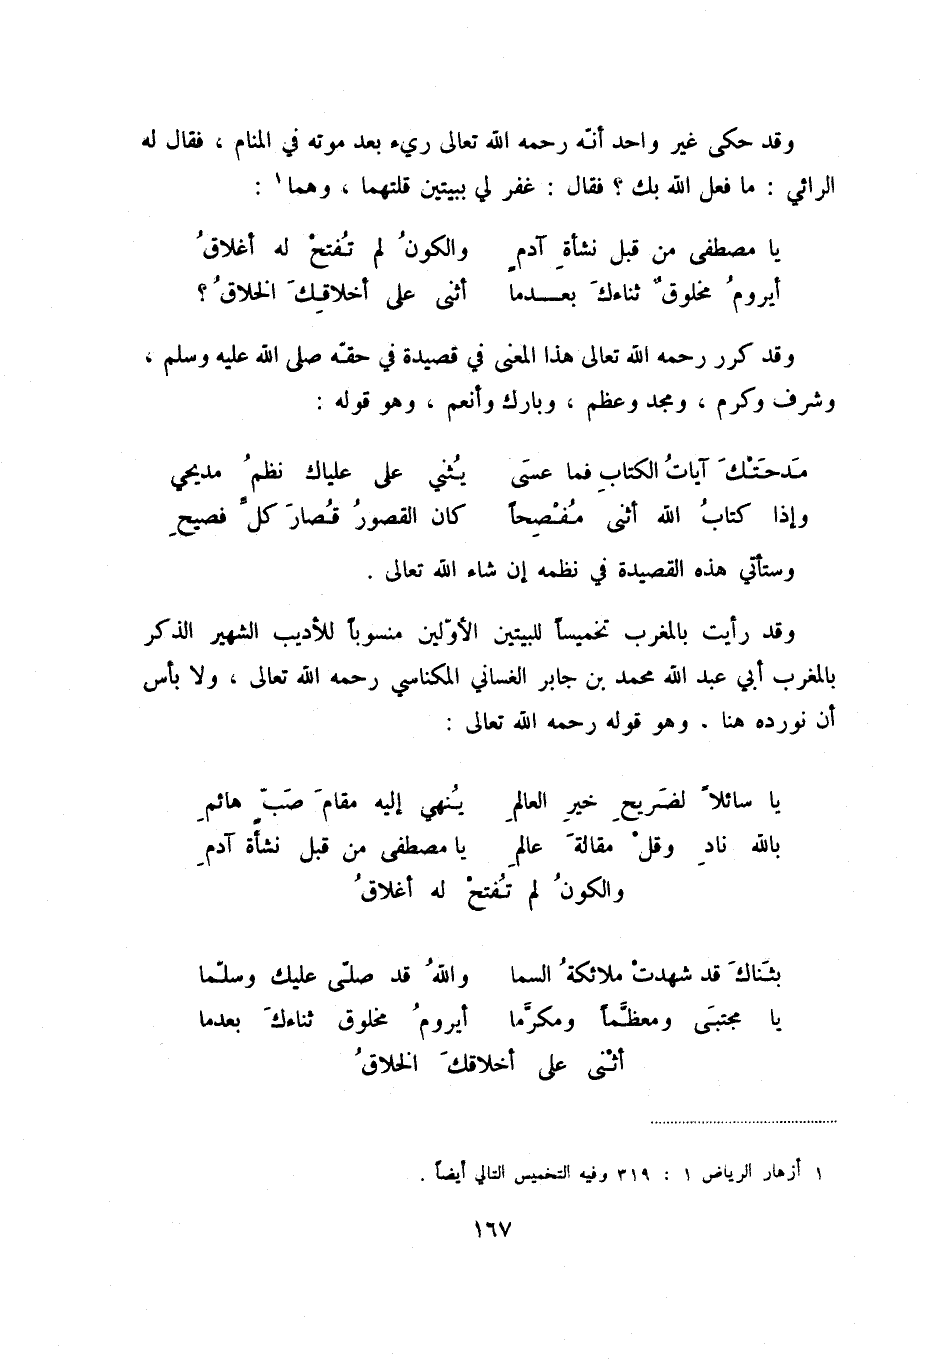 وقد حكى غير واحد أنّه رحمه الله تعالى ريء بعد موته في المنام ، فقال له
الرائي : ما فعل الله بك ؟ فقال : غفر لي ببيتين قلتهما ، وهما ١ :
يا مصطفى من قبل نشأةِ آدمٍ والكونُ لم تُفتحْ له أغلاقُ
أيرومُ مخلوقٌ ثناءكَ بعـــدما أثنى على أخلاقِكَ الخلاقُ ؟
وقد كرر رحمه الله تعالى هذا المعنى في قصيدة في حقّه صلى الله عليه وسلم ،
وشرف وكرم ، ومجد وعظم ، وبارك وأنعم ، وهو قوله :
مَدحَتْكَ آياتُ الكتابِ فما عسَى يُثني على علياك نظمُ مديحي
وإذا كتابُ الله أثنى مُفْصِحاً كان القصورُ قُصارَ كلّ فصيحِ
وستأتي هذه القصيدة في نظمه إن شاء الله تعالى .
وقد رأيت بالمغرب تخميساً للبيتين الأوّلين منسوباً للأديب الشهير الذكر
بالمغرب أبي عبد الله محمد بن جابر الغساني المكناسي رحمه الله تعالى ، ولا بأس
أن نورده هنا . وهو قوله رحمه الله تعالى :
يا سائلاً لضَريحِ خيرِ العالمِ يُنهي إليه مقامَ صَبٍّ هائمِ
بالله نادِ وقلْ مقالةَ عالمِ يا مصطفى من قبل نشأة آدمِ
والكونُ لم تُفتحْ له أغلاقُ
بثَناكَ قد شهدتْ ملائكةُ السما واللهُ قد صلّى عليك وسلّما
يا مجتبَى ومعظَّماً ومكرَّما أيرومُ مخلوق ثناءكَ بعدما
أثْنى على أخلاقكَ الخلاقُ
١ أزهار الرياض ١ : ٣١٩ وفيه التخميس التالي أيضاً .
١٦٧